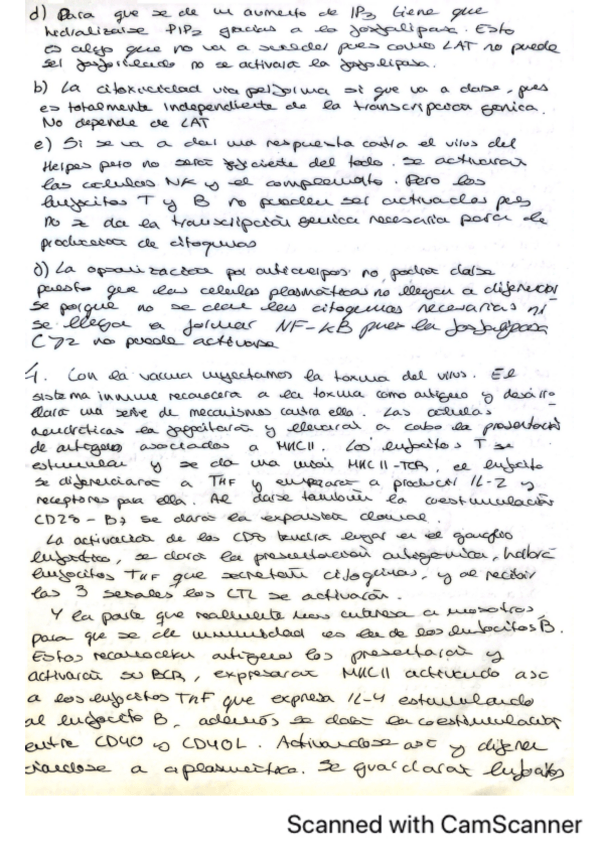 d) Para que se de un aumento de IP3 tiene que
hidrolizarse PIP2 gracias a la fosfolipasa. Esto
es algo que no va a suceder pues como LAT no puede
ser fosforilado no se activara la fosfolipasa.
b) La citoxicidad via perforina si que va a darse, pues
es totalmente independiente de la transcripcion genica.
No depende de LAT
e) Si se va a dar una respuesta contra el virus del
Herpes pero no sera suficiente del todo. Se activaran
las celulas NK y el complemento. Pero los
linfocitos T y B no pueden ser activados pues
no se da la transcripción genica necesaria para la
produccion de citoquinas
d) La opsonización por anticuerpos no podra darse
puesto que las celulas plasmáticas no llegan a diferenciar
se porque no se dan las citoquinas necesarias ni
se llega a formar NF-kB pues la fosfolipasa
C72 no puede activarse
4. Con la vacuna inyectamos la toxina del virus. El
sistema inmune reconocera a la toxina como antigeno y desarro
llara una serie de mecanismos contra ella. Las celulas
dendríticas la fagocitaran y llevaran a cabo la presentación
de antigeno asociados a MHCII. Los linfocitos T se
estimulan y se da una union MHCII-TCR, el linfocito
se diferenciara a THF y empezara a producir IL-2 y
receptores para ella. Al darse tambien la coestimulacion
CD28 - B7 se dara la expansion clonal.
La activacion de los CD8 tendra lugar en el ganglio
linfatico, se dara la presentacion antigenica, habra
linfocitos THF que secretan citoquinas, y al recibir
las 3 señales los CTL se activaran.
Y la parte que realmente nos interesa a nosotros,
para que se de inmunidad es la de los linfocitos B.
Estos reconocen antigenos los presentaran y
activaran su BCR, expresaran MHCII activando asi
a los linfocitos THF que expresa IL-4 estimulando
al linfocito B, además se dara la coestimulacion
entre CD40 y CD40L. Activandose asi y diferen
ciandose a c.plasmatica. Se guardaran linfocitos
Scanned with CamScanner